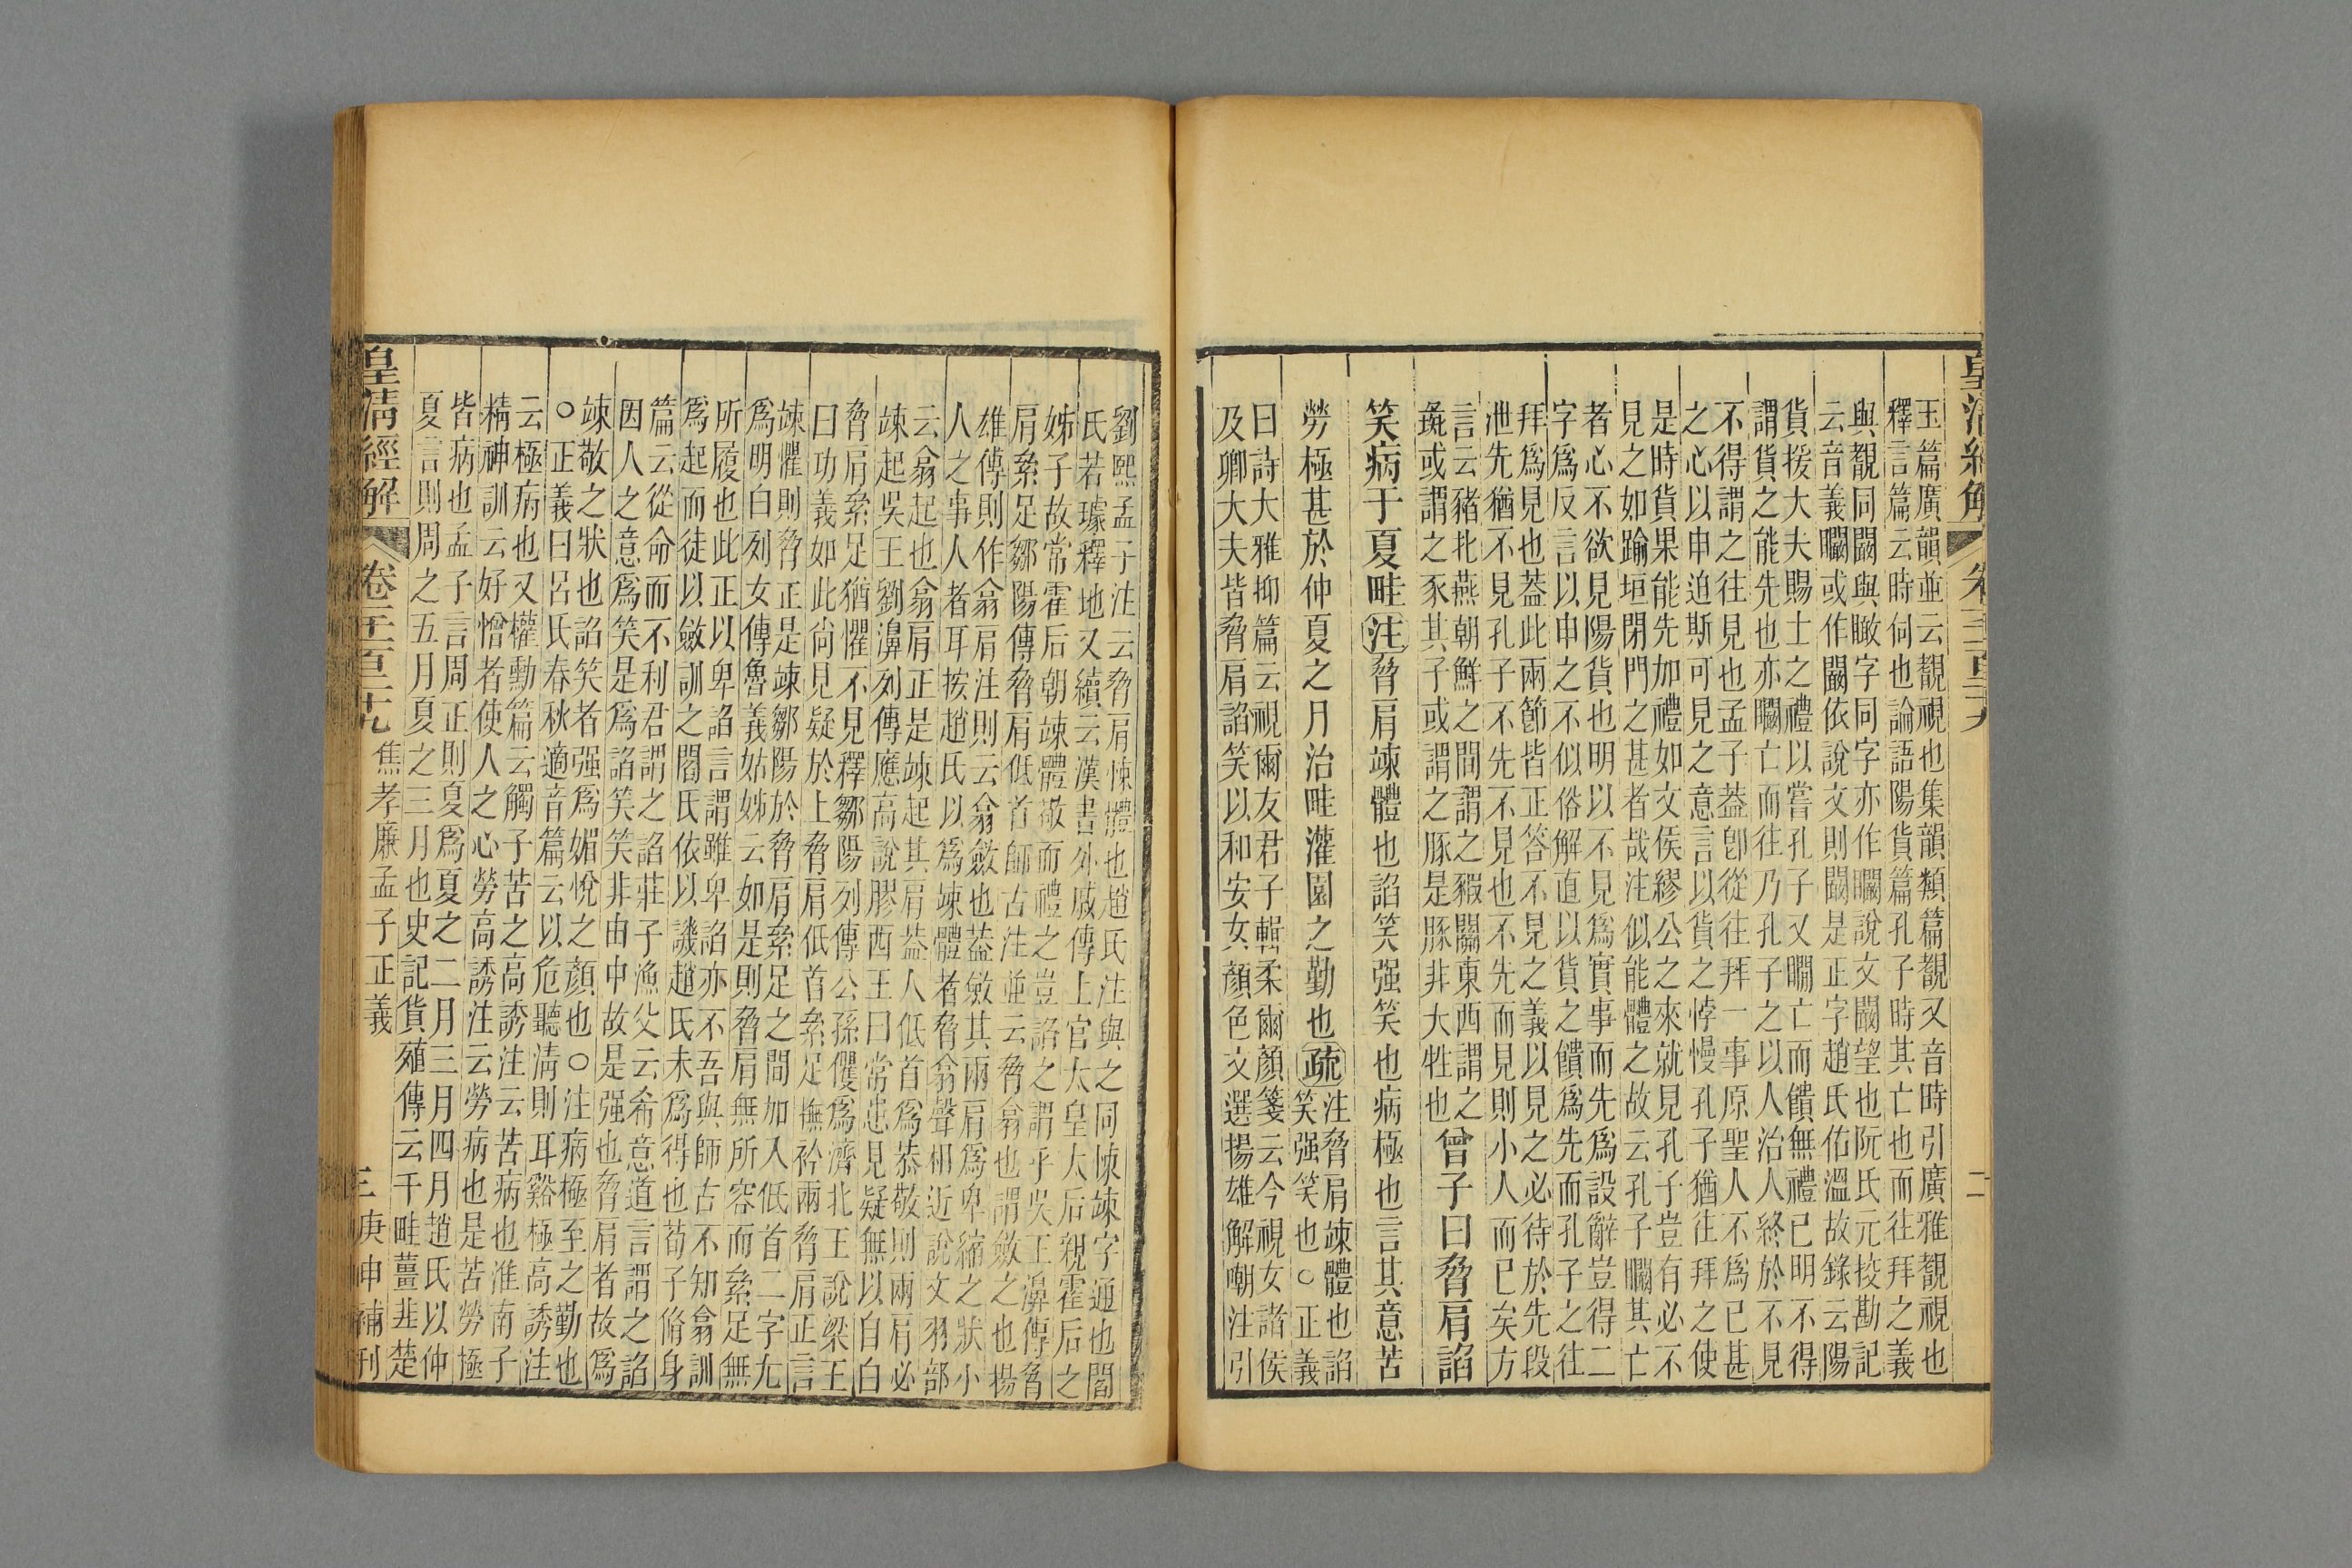 皇清經解
卷一千一百二十九
二
玉篇廣韻並云覩視也集韻類篇覩又音時引廣雅覩視也
釋言篇云時伺也論語陽貨篇孔子時其亡也而往拜之義
與覩同闞與瞰字同字亦作矙說文闞望也阮氏元挍勘記
云音義矙或作闞依說文則闞是正字趙氏佑溫故錄云陽
貨援大夫賜士之禮以嘗孔子又矙亡而饋無禮已明不得
謂貨之能先也亦矙亡而往乃孔子之以人治人終於不見
不得謂之往見也孟子葢卽從往拜一事原聖人不爲已甚
之心以申迫斯可見之意言以貨之悖慢孔子猶往拜之使
是時貨果能先加禮如文侯繆公之來就見孔子豈有必不
見之如踰垣閉門之甚者哉注似能體之故云孔子矙其亡
者心不欲見陽貨也明以不見爲實事而先爲設辭豈得二
字爲反言以申之不似俗解直以貨之饋爲先而孔子之往
拜爲見也葢此兩節皆正答不見之義以見之必待於先段
泄先猶不見孔子不先不見也不先而見則小人而已矣方
言云豬北燕朝鮮之間謂之豭關東西謂之
彘或謂之豕其子或謂之豚是豚非大牲也曾子曰脅肩諂
笑病于夏畦注脅肩竦體也諂笑强笑也病極也言其意苦
勞極甚於仲夏之月治畦灌園之勤也疏注脅肩竦體也諂
笑强笑也○正義
曰詩大雅抑篇云視爾友君子輯柔爾顏箋云今視女諸侯
及卿大夫皆脅肩諂笑以和安女顏色文選揚雄解嘲注引
劉熙孟子注云脅肩悚體也趙氏注與之同悚竦字通也閻
氏若璩釋地又續云漢書外戚傳上官太皇太后親霍后之
姊子故常霍后朝竦體敬而禮之豈諂之謂乎吳王濞傳脅
肩絫足鄒陽傳脅肩低首師古注並云脅翕也謂斂之也揚
雄傳則作翕肩注則云翕斂也葢斂其兩肩爲卑縮之狀小
人之事人者耳按趙氏以爲竦體者脅翕聲相近說文羽部
云翕起也翕肩正是竦起其肩葢人低首爲恭敬則兩肩必
竦起吳王劉濞列傳應高說膠西王曰常患見疑無以自白
脅肩絫足猶懼不見釋鄒陽列傳公孫㺢爲濟北王說梁王
曰功義如此尙見疑於上脅肩低首絫足撫衿兩脅肩正言
竦懼則脅正是竦鄒陽於脅肩絫足之間加入低首二字尤
爲明白列女傳魯義姑姊云如是則脅肩無所容而絫足無
所履也此正以卑諂言謂雖卑諂亦不吾與師古不知翕訓
爲起而徒以斂訓之閻氏依以譏趙氏未爲得也荀子脩身
篇云從命而不利君謂之諂莊子漁父云希意道言謂之諂
因人之意爲笑是爲諂笑笑非由中故是强也脅肩者故爲
竦敬之狀也諂笑者强爲媚悅之顏也○注病極至之勤也
○正義曰呂氏春秋適音篇云以危聽淸則耳谿極高誘注
云極病也又權勳篇云觸子苦之高誘注云苦病也淮南子
精神訓云好憎者使人之心勞高誘注云勞病也是苦勞極
皆病也孟子言周正則夏爲夏之二月三月四月趙氏以仲
夏言則周之五月夏之三月也史記貨殖傳云千畦薑韭楚
皇清經解
卷一千一百二十九
焦孝廉孟子正義
三
庚申補刊